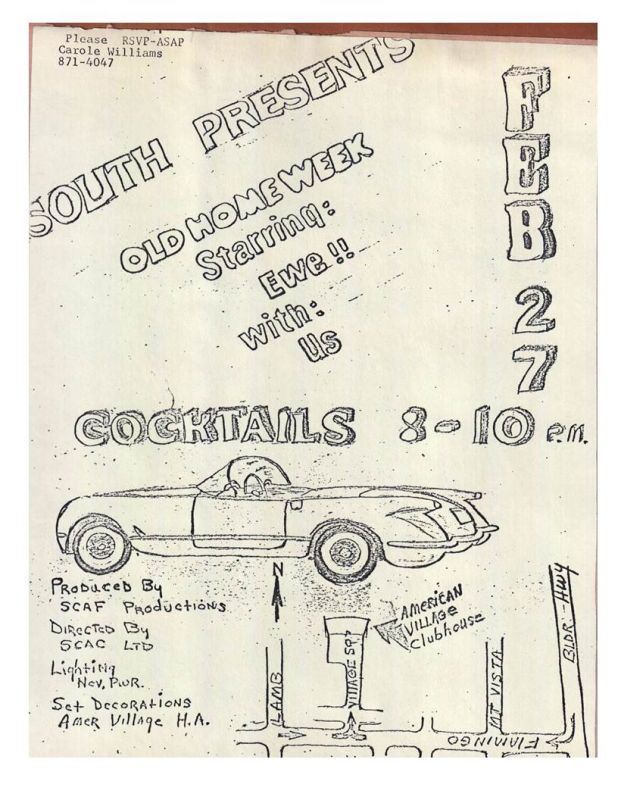 Please RSVP-ASAP
Carole Williams
871-4047
SOUTH PRESENTS
OLD HOME WEEK
Starring:
Ewe!!
with:
us
FEB
27
COCKTAILS 8-10 P.M.
Produced By
SCAF Productions
Directed By
SCAC LTD
Lighting
Nev. PWR.
Set Decorations
Amer Village H.A.
N
AMERICAN
VILLAGE
Clubhouse
LAMB
VILLAGE SQ
MT VISTA
BLDR-HWY
FLAMINGO